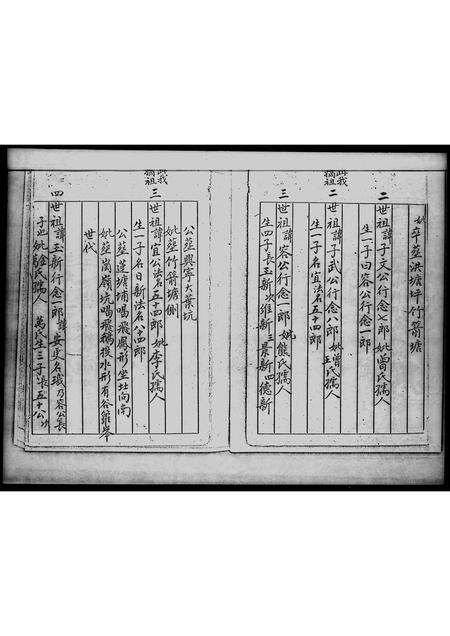 妣卒葬洪塘坪竹箭塘
二
世祖諱子文公行念七郎 妣曾氏孺人
生一子曰容公行念一郎
二
世祖諱子武公行念八郎 妣曾氏 王氏孺人
生一子名宜法名五十四郎
三
世祖諱容公行念一郎 妣熊氏孺人
生四子長玉新 次維新 三景新 四德新
公葬興寧大葉坑
妣葬竹箭塘側
三
世祖諱宜公法名五十四郎 妣李氏孺人
生一子名日新法名八十四郎
公葬蓮塘埔喝飛鳳形坐北向南
妣葬崗嶺坑喝飛鵝投水形有谷雞岸
世代
四
世祖諱玉新行念一郎 安吏名璣乃容公長
子也 妣徐氏孺人 萬氏生三子長五十公次